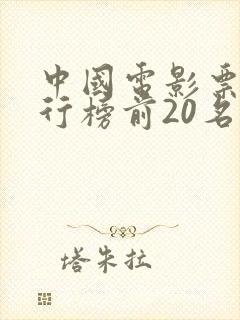 中國電影票
行榜前20名
塔朱拉